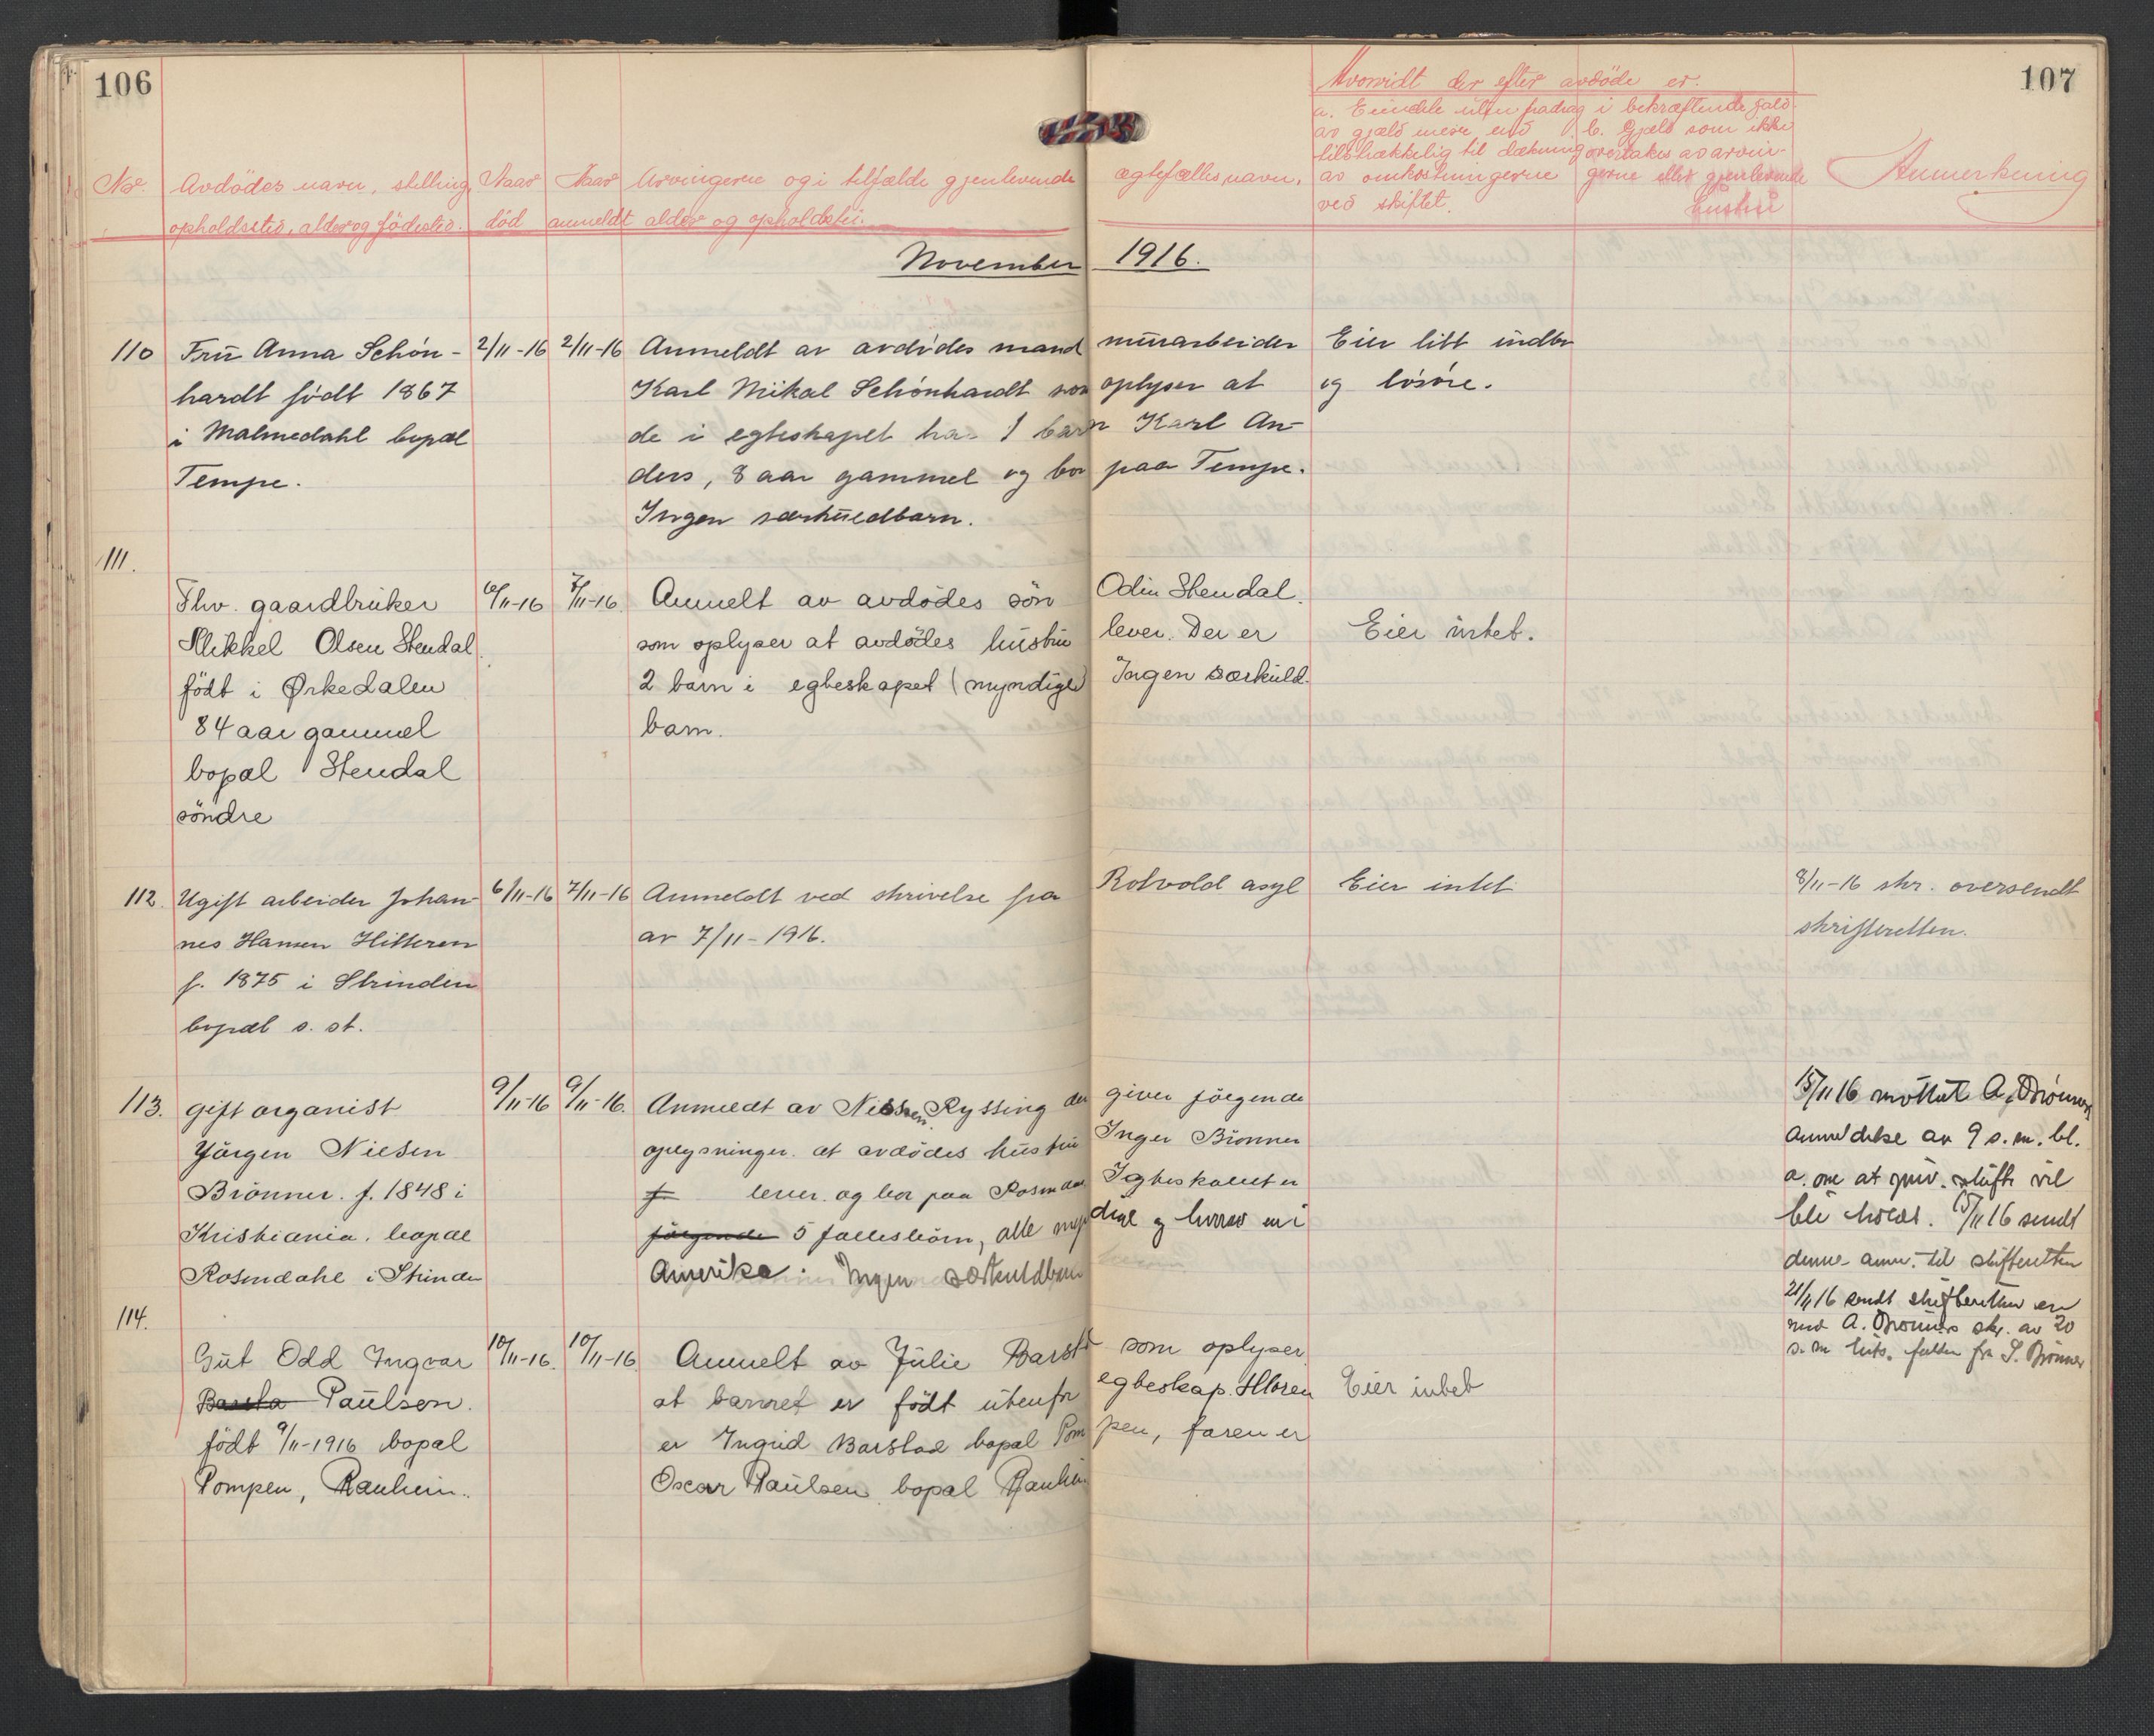 106
107
Hvorvidt der efter avdöde er.
a. Eiendele uten fradrag i bekræftende fald
av gjæld mere end b. Gjæld som ikke
tilstrækkelig til dækning overtakes av arvin-
av omkostningerne gerne eller gjenlevende
ved skiftet. hustru
Anmerkning
No. Avdödes navn, stilling, Naar Naar Arvingerne og i tilfælde gjenlevende ægtefælles navn,
opholdssted, alder og födested. död anmeldt alder og opholdsted.
November 1916.
110 Fru Anna Schön- 2/11-16 2/11-16 Anmeldt av avdödes mand murarbeider Eier litt indbo
hardt födt 1867 Karl Mikal Schönhardt som oplyser at og lösöre.
i Malmedahl bopæl de i egteskapet har 1 barn Karl An-
Tempe. ders, 8 aar gammel og bor paa Tempe.
Ingen særkuldbarn.
111.
Fhv. gaardbruker 6/11-16 7/11-16. Anmelt av avdödes sön Odin Stendal.
Mikkel Olsen Stendal som oplyser at avdödes hustru lever. Der er Eier intet.
födt i Ørkedalen 2 barn i egteskapet (myndige) Ingen særkuld.
84 aar gammel barn.
bopæl Stendal
söndre
112. Ugift arbeider Johan- 6/11-16 7/11-16 Anmeldt ved skrivelse fra Rotvold asyl Eier intet 8/11-16 skr. oversendt
nes Hansen Hitteren av 7/11-1916. skrifteretten.
f. 1875 i Strinden
bopæl s. st.
113. gift organist 9/11-16 9/11-16. Anmeldt av Nissen Ryssing der giver følgende 15/11 16 mottat A. Brönners
Jörgen Nissen oplysninger. at avdödes hustru Inger Brönner anmeldelse av 9 s. m. bl.
Brönner. f. 1848 i f lever. og bor paa Rosendal I egteskapet er a. om at priv. skifte vil
Kristiania. bopæl følgende 5 fællesbörn, alle myndige og hvorav en i bli holdt. 15/11 16 sendt
Rosendahl i Strinden Amerika. Ingen særkuldbarn denne anm. til skifteretten
21/11 16 sendt skifteretten en
A. Brönners skr. av 20
s. m.
114.
Gut Odd Ingvar 10/11-16. 10/11-16 Anmelt av Julie Barstad som oplyser
Barsta Paulsen. at barnet er födt utenfor egteskap. Moren Eier intet
födt 9/11-1916 bopæl er Ingrid Barstad bopæl Pompen, faren er
Pompen, Ranheim. Oscar Paulsen bopæl Ranheim